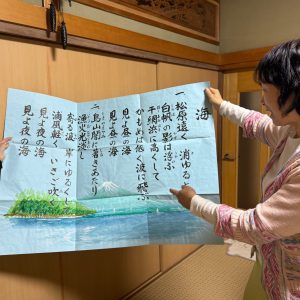 海
一、松原遠く 消ゆる
白帆の影は浮ぶ
干網浜に高くして
かもめは低く波に飛ぶ
見よ昼の海
見よ昼の海
二、島山闇に著きあたり
漁火光淡し
寄る波 岸にゆるくして
浦風軽く いさご吹く
見よ夜の海
見よ夜の海